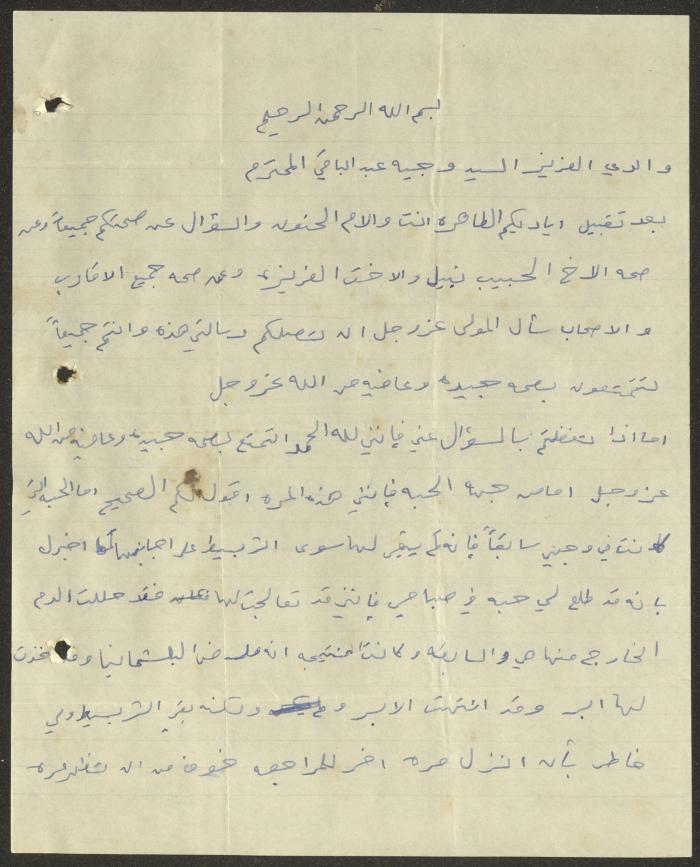 بسم الله الرحمن الرحيم
والدي العزيز السيد وجيه عبد الباقي المحترم
بعد تقبيل اياديكم الطاهره انت والام الحنون والسؤال عن صحتكم جميعاً وعن
صحه الاخ الحبيب نبيل والاخت العزيزه وعن صحه جميع الاقارب
والاصحاب سأل المولى عز وجل ان تصلكم رسالتي هذه وانتم جميعاً
تتمتعون بصحه جيده وعافيه من الله عز وجل
اما اذا تفضلتم بالسؤال عني فإنني لله الحمد اتمتع بصحه جيده وعافيه من الله
عز وجل اما من جهه الحبه فإنني هذه المره اقول لكم الصحيح اما الحبه التي
كانت في وجهي سابقاً فإنه لم يبقى لها سوى اثر بسيط اخبرك
بانه قد طلع لي حبه في فإنني قد تعالجت لها فقد حللت الدم
الخارج منها هي والسابقه وكانت النتيجه وقد اخذت
لها ابر وقد انتهت الابر ولكنه بقي اثر بسيط ولي
خاطر بأن انزل مره اخر للمراجعه خوف من ان تظهر مره